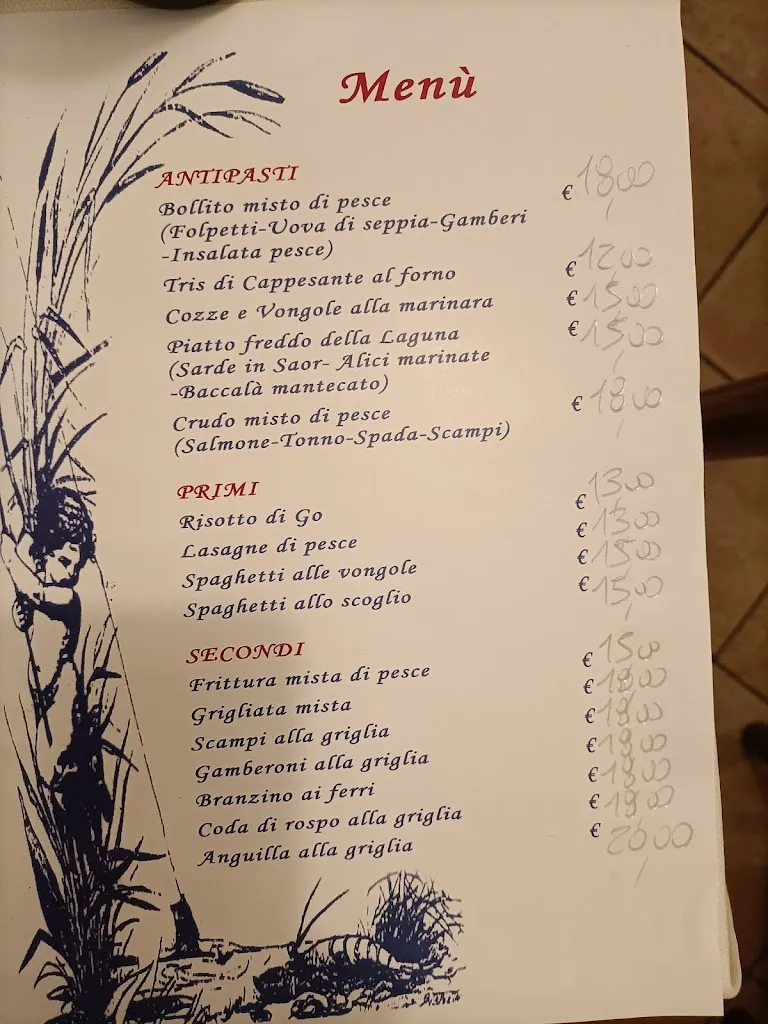 Menù
ANTIPASTI
Bollito misto di pesce € 18,00
(Folpetti-Uova di seppia-Gamberi
-Insalata pesce)
Tris di Cappesante al forno € 12,00
Cozze e Vongole alla marinara € 15,00
Piatto freddo della Laguna € 15,00
(Sarde in Saor- Alici marinate
-Baccalà mantecato)
Crudo misto di pesce € 18,00
(Salmone-Tonno-Spada-Scampi)
PRIMI
Risotto di Go € 13,00
Lasagne di pesce € 13,00
Spaghetti alle vongole € 15,00
Spaghetti allo scoglio € 15,00
SECONDI
Frittura mista di pesce € 15,00
Grigliata mista € 18,00
Scampi alla griglia € 18,00
Gamberoni alla griglia € 18,00
Branzino ai ferri € 18,00
Coda di rospo alla griglia €
Anguilla alla griglia €